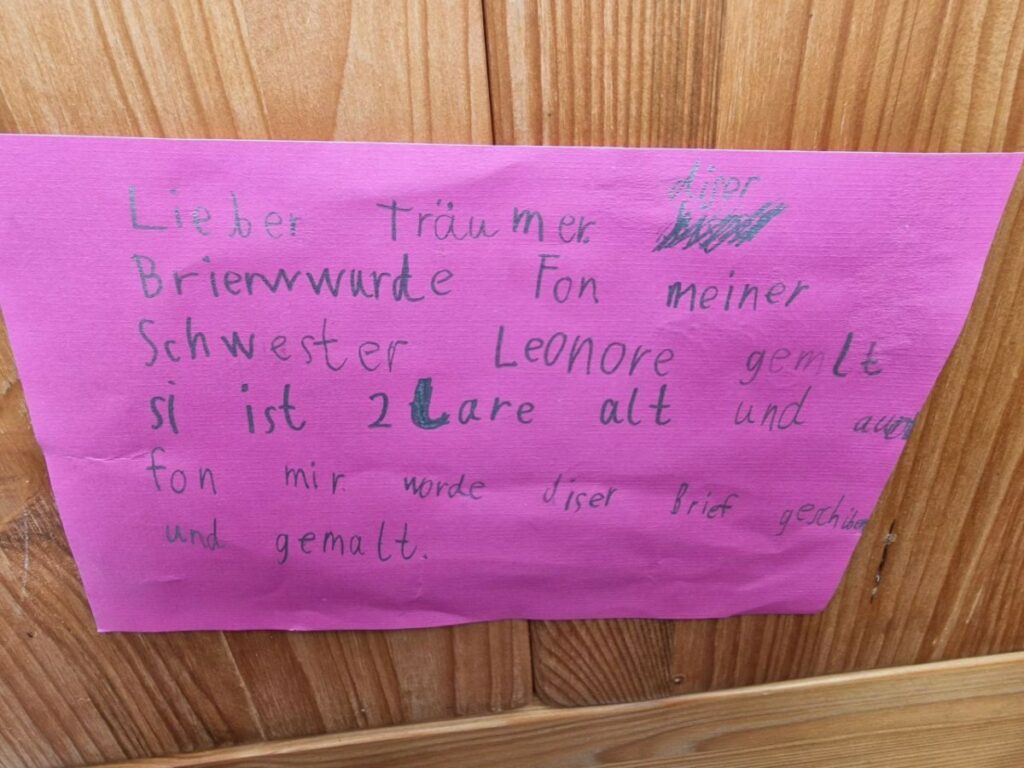 Lieber Träumer. diser
Brienwwurde Fon meiner
Schwester Leonore gemlt
si ist 2 Lare alt und auch
fon mir worde diser Brief geschiben
und gemalt.